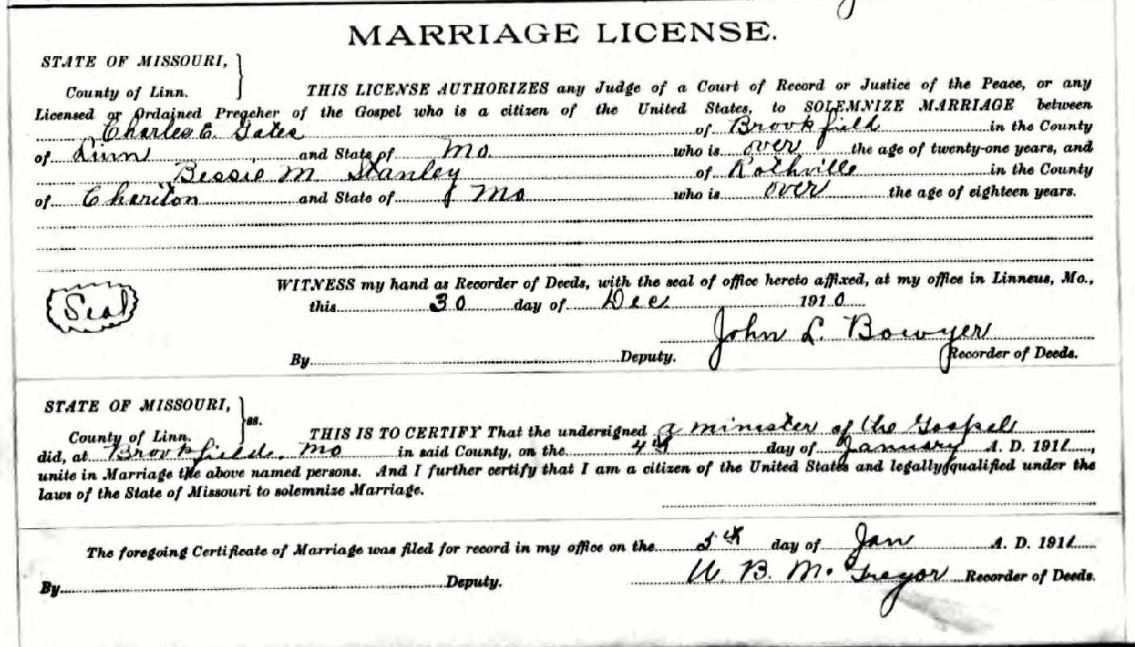 MARRIAGE LICENSE.
STATE OF MISSOURI,
County of Linn. THIS LICENSE AUTHORIZES any Judge of a Court of Record or Justice of the Peace, or any
Licensed or Ordained Preacher of the Gospel who is a citizen of the United States, to SOLEMNIZE MARRIAGE between
Charles E. Gates of Brookfield in the County
of Linn and State of Mo who is over the age of twenty-one years, and
Bessie M Stanley of Rothville in the County
of Chariton and State of Mo who is over the age of eighteen years.
WITNESS my hand as Recorder of Deeds, with the seal of office hereto affixed, at my office in Linneus, Mo.,
Seal
this 30 day of Dec 1910
John L. Bowyer
By Deputy. Recorder of Deeds.
STATE OF MISSOURI,
ss.
County of Linn. THIS IS TO CERTIFY That the undersigned a minister of the Gospel
did, at Brookfield, Mo in said County, on the 4th day of January A. D. 1911,
unite in Marriage the above named persons. And I further certify that I am a citizen of the United States and legally qualified under the
laws of the State of Missouri to solemnize Marriage.
The foregoing Certificate of Marriage was filed for record in my office on the 5th day of Jan A. D. 1911
By Deputy. W. B. McGregor Recorder of Deeds.